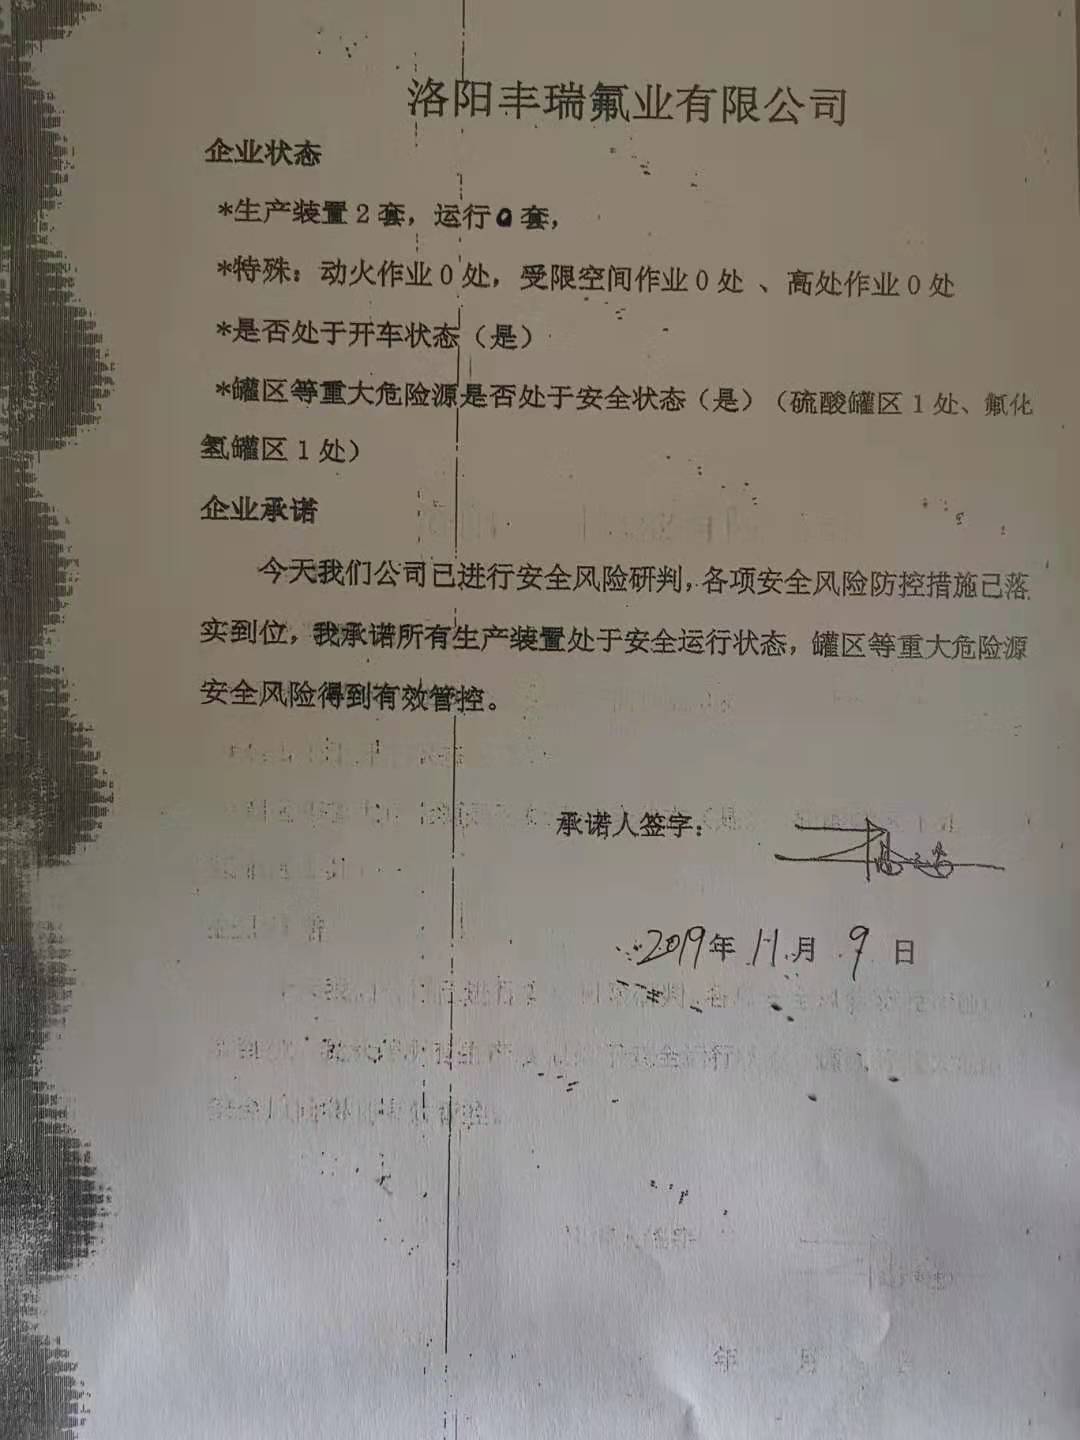 洛阳丰瑞氟业有限公司
企业状态
*生产装置 2 套，运行0套，
*特殊：动火作业 0 处，受限空间作业 0 处 、高处作业 0 处
*是否处于开车状态（是）
*罐区等重大危险源是否处于安全状态（是）（硫酸罐区 1 处、氟化
氢罐区 1 处）
企业承诺
今天我们公司已进行安全风险研判，各项安全风险防控措施已落
实到位，我承诺所有生产装置处于安全运行状态，罐区等重大危险源
安全风险得到有效管控。
承诺人签字：
2019年 11月 9 日